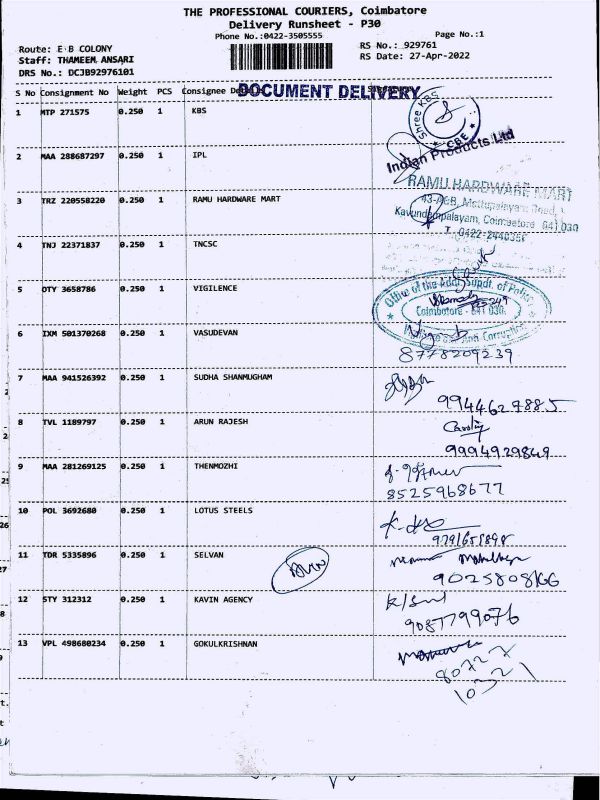 THE PROFESSIONAL COURIERS, Coimbatore
Delivery Runsheet - P30
Phone No.:0422-3505555
Page No.:1
Route: E B COLONY
RS No.: 929761
Staff: THAMEEM ANSARI
RS Date: 27-Apr-2022
DRS No.: DCJB92976101
S No Consignment No Weight PCS Consignee
DOCUMENT DELIVERY
1 MTP 271575 0.250 1 KBS
Shree KBS
* CBE *
2 MAA 288687297 0.250 1 IPL
Indian Products Ltd
3 TRZ 220558220 0.250 1 RAMU HARDWARE MART
RAMU HARDWARE MART
43-A&B, Mettupalayam Road,
Kavundampalayam, Coimbatore 641030
4 TNJ 22371837 0.250 1 TNCSC
5 OTY 3658786 0.250 1 VIGILENCE
Office of the Addl. Supdt. of Police
Coimbatore - 641 030.
Vigilance and Anti Corruption
6 IXM 501370268 0.250 1 VASUDEVAN
8778209239
7 MAA 941526392 0.250 1 SUDHA SHANMUGHAM
8 TVL 1189797 0.250 1 ARUN RAJESH
9994929849
9 MAA 281269125 0.250 1 THENMOZHI
8525968677
10 POL 3692680 0.250 1 LOTUS STEELS
11 TDR 5335896 0.250 1 SELVAN
12 STY 312312 0.250 1 KAVIN AGENCY
9087799076
13 VPL 498680234 0.250 1 GOKULKRISHNAN